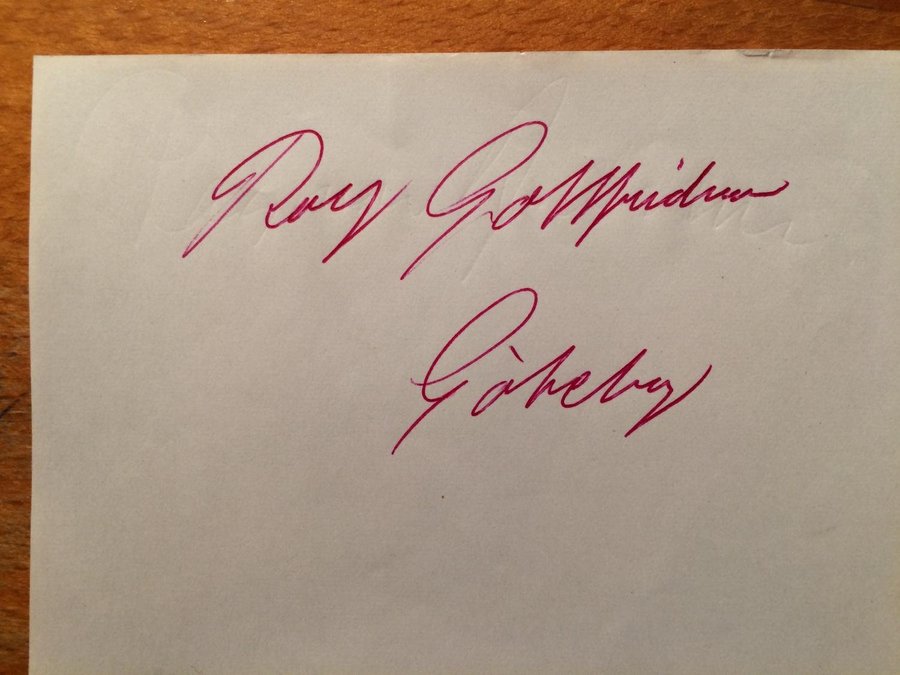 Roy Gottfridsson
Göteborg